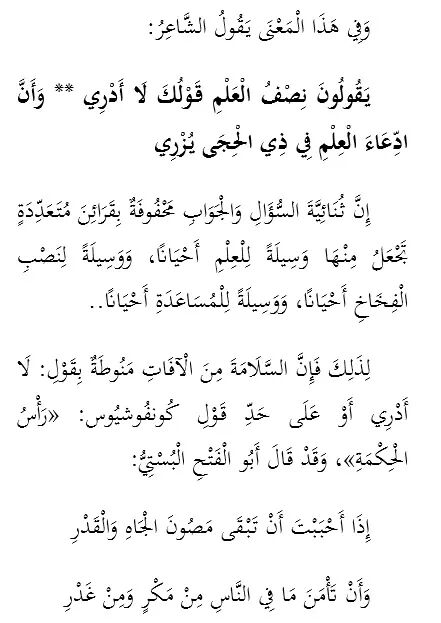 وَفِي هَذَا الْمَعْنَى يَقُولُ الشَّاعِرُ:
يَقُولُونَ نِصْفُ الْعَلْمِ قَوْلُكَ لَا أَدْرِي ** وَأَنَّ
ادِّعَاءَ الْعِلْمِ فِي ذِي الْحِجَى يُزْرِي
إِنَّ ثُنَائِيَّةَ السُّؤَالِ وَالْجَوَابِ مَحْفُوفَةٌ بِقَرَائِنَ مُتَعَدِّدَةٍ
تَجْعَلُ مِنْهَا وَسِيلَةً لِلْعِلْمِ أَحْيَانًا، وَوَسِيلَةً لِنَصْبِ
الْفِخَاخِ أَحْيَانًا، وَوَسِيلَةً لِلْمُسَاعَدَةِ أَحْيَانًا..
لِذَلِكَ فَإِنَّ السَّلَامَةَ مِنَ الْآفَاتِ مَنُوطَةٌ بِقَوْلِ: لَا
أَدْرِي أَوْ عَلَى حَدِّ قَوْلِ كُونفُوشيُوس: «رَأْسُ
الْحِكْمَةِ»، وَقَدْ قَالَ أَبُو الْفَتْحِ الْبُسْتِيُّ:
إِذَا أَحْبَبْتَ أَنْ تَبْقَى مَصُونَ الْجَاهِ وَالْقَدْرِ
وَأَنْ تَأْمَنَ مَا فِي النَّاسِ مِنْ مَكْرٍ وَمِنْ غَدْرِ